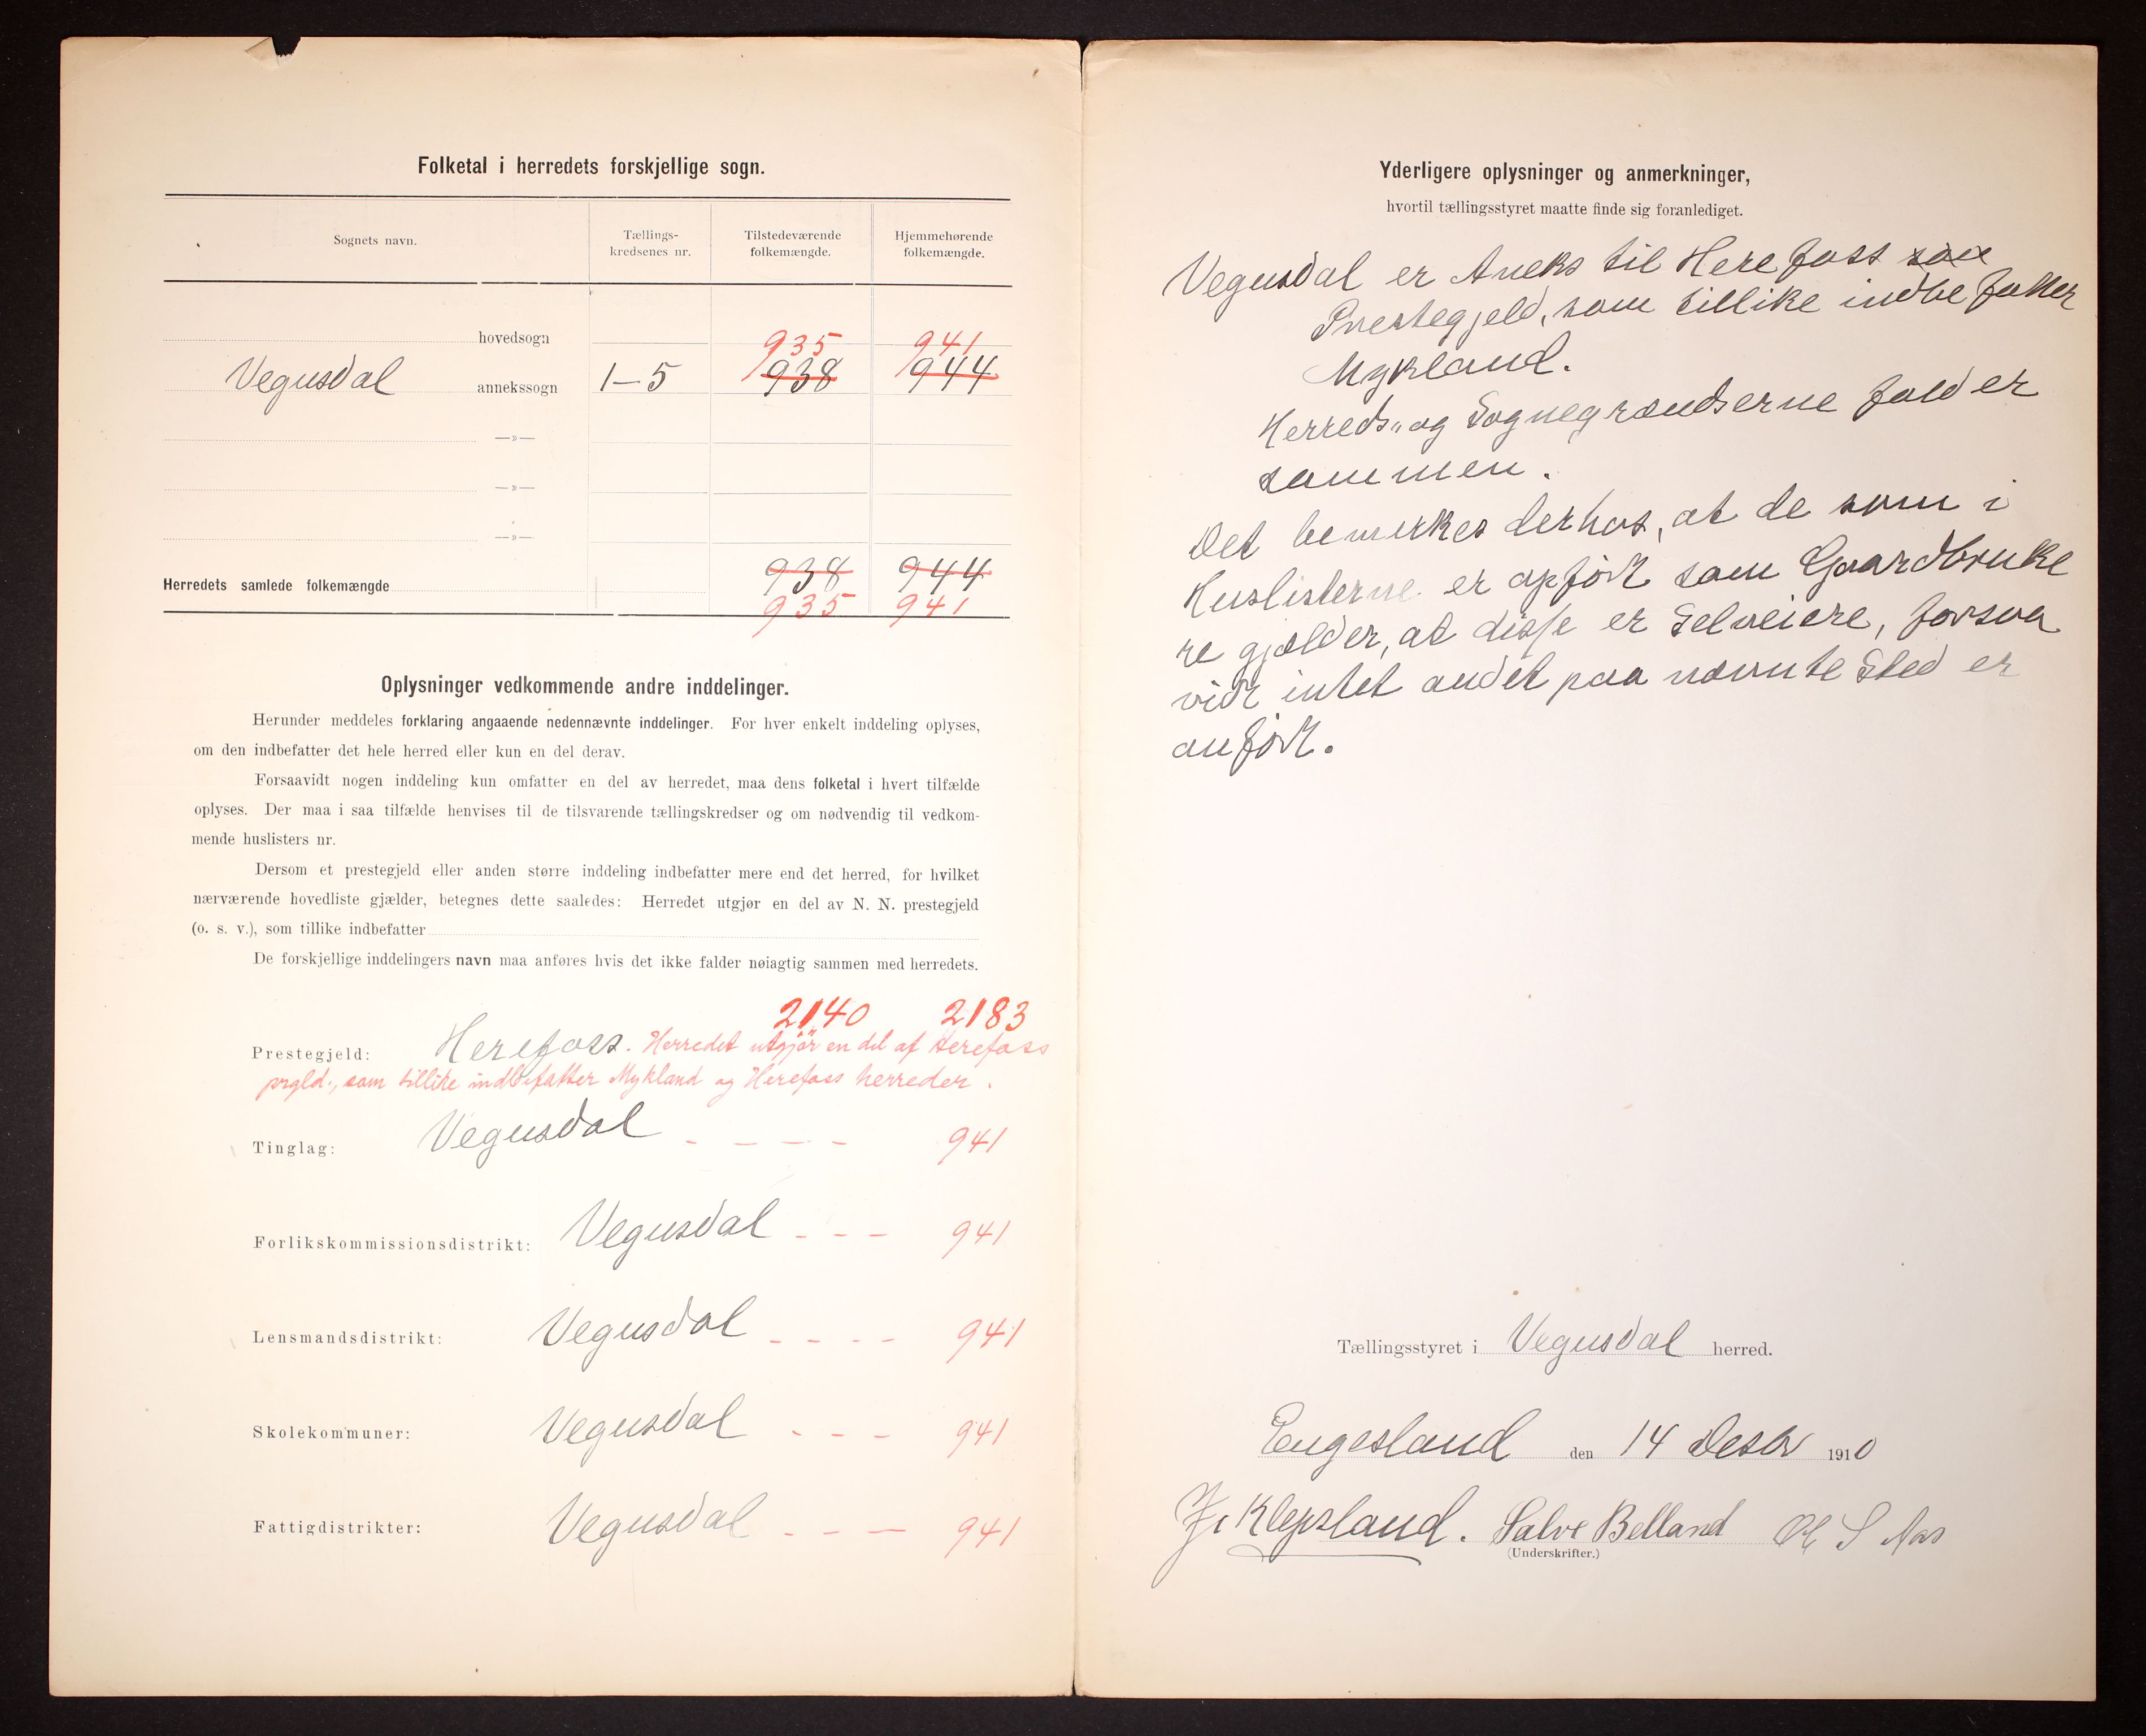 Folketal i herredets forskjellige sogn.
Sognets navn. Tællings-kredsenes nr. Tilstedeværende folkemængde. Hjemmehørende folkemængde.
hovedsogn 935 941
Vegusdal annekssogn 1-5 938 944
—»—
—»—
—»—
938 944
Herredets samlede folkemængde
935 941
Oplysninger vedkommende andre inddelinger.
Herunder meddeles forklaring angaaende nedennævnte inddelinger. For hver enkelt inddeling oplyses,
om den indbefatter det hele herred eller kun en del derav.
Forsaavidt nogen inddeling kun omfatter en del av herredet, maa dens folketal i hvert tilfælde
oplyses. Der maa i saa tilfælde henvises til de tilsvarende tællingskredser og om nødvendig til vedkom-
mende huslisters nr.
Dersom et prestegjeld eller anden større inddeling indbefatter mere end det herred, for hvilket
nærværende hovedliste gjælder, betegnes dette saaledes: Herredet utgjør en del av N. N. prestegjeld
(o. s. v.), som tillike indbefatter
De forskjellige inddelingers navn maa anføres hvis det ikke falder nøiagtig sammen med herredets.
2140 2183
Prestegjeld: Herefoss. Herredet utgjør en del af Herefoss
prgld., som tillike indbefatter Mykland og Herefoss herreder.
Tinglag: Vegusdal - - - - 941
Forlikskommissionsdistrikt: Vegusdal - - - 941
Lensmandsdistrikt: Vegusdal - - - - 941
Skolekommuner: Vegusdal - - - 941
Fattigdistrikter: Vegusdal - - - 941
Yderligere oplysninger og anmerkninger,
hvortil tællingsstyret maatte finde sig foranlediget.
Vegusdal er Aneks til Herefoss som
Prestegjeld, som tillike indbefatter
Mykland.
Herreds- og Sognegrændserne falder
sammen.
Det bemerkes derhos, at de som i
Huslisterne er opført som Gaardbruke
re gjælder, at disse er Selveiere, forsaa
vidt intet andet paa nævnte Sted er
anført.
Tællingsstyret i Vegusdal herred.
Engesland den 14 Desbr 1910
Klepsland. Salve Belland Ol S Aas
(Underskrifter.)